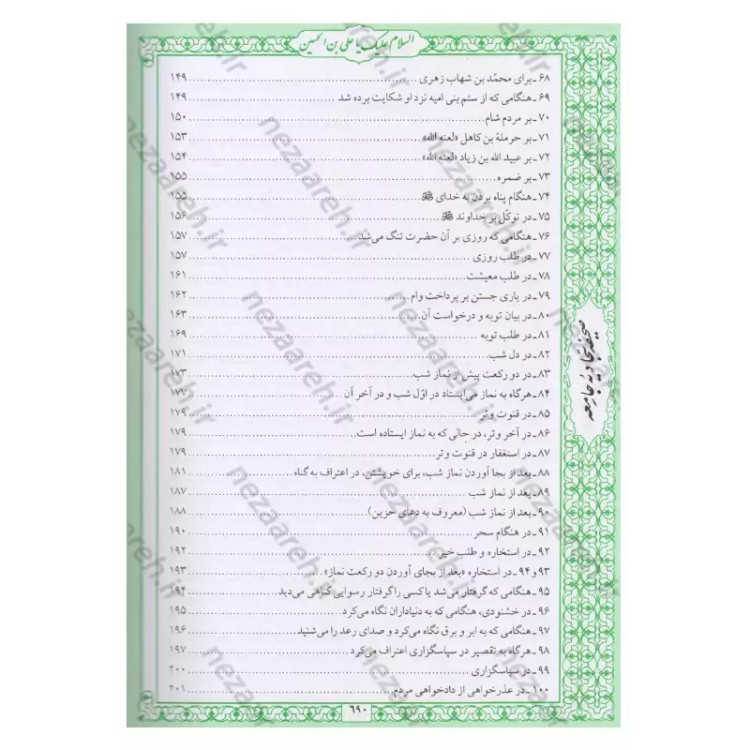 السلام علیک یا علی بن الحسین
۶۸ـ برای محمّد بن شهاب زهری ۱۴۹
۶۹ـ هنگامی که از ستم بنی امیه نزد او شکایت برده شد ۱۴۹
۷۰ـ بر مردم شام ۱۵۰
۷۱ـ بر حرملة بن کاهل «لعنه الله» ۱۵۳
۷۲ـ بر عبید الله بن زیاد «لعنه الله» ۱۵۴
۷۳ـ بر ضمره ۱۵۵
۷۴ـ هنگام پناه بردن به خدای ۱۵۵
۷۵ـ در توکّل بر خداوند ۱۵۶
۷۶ـ هنگامی که روزی بر آن حضرت تنگ می‌شد ۱۵۷
۷۷ـ در طلب روزی ۱۵۷
۷۸ـ در طلب معیشت ۱۶۱
۷۹ـ در یاری جستن بر پرداخت وام ۱۶۲
۸۰ـ در بیان توبه و درخواست آن ۱۶۴
۸۱ـ در طلب توبه ۱۶۹
۸۲ـ در دل شب ۱۷۱
۸۳ـ در دو رکعت پیش از نماز شب ۱۷۳
۸۴ـ هرگاه به نماز می‌ایستاد در اوّل شب و در آخر آن ۱۷۷
۸۵ـ در قنوت وتر ۱۷۹
۸۶ـ در آخر وتر، در حالی که به نماز ایستاده است ۱۷۹
۸۷ـ در استغفار در قنوت وتر ۱۷۹
۸۸ـ بعد از بجا آوردن نماز شب، برای خویشتن، در اعتراف به گناه ۱۸۱
۸۹ـ بعد از نماز شب ۱۸۷
۹۰ـ بعد از نماز شب (معروف به دعای حزین) ۱۸۸
۹۱ـ در هنگام سحر ۱۹۰
۹۲ـ در استخاره و طلب خیر ۱۹۲
۹۳ و ۹۴ـ در استخاره «بعد از بجای آوردن دو رکعت نماز» ۱۹۳
۹۵ـ هنگامی که گرفتار می‌شد یا کسی را گرفتار رسوایی گناهی می‌دید ۱۹۴
۹۶ـ در خشنودی، هنگامی که به دنیاداران نگاه می‌کرد ۱۹۵
۹۷ـ هنگامی که به ابر و برق نگاه می‌کرد و صدای رعد را می‌شنید ۱۹۶
۹۸ـ هرگاه به تقصیر در سپاسگزاری اعتراف می‌کرد ۱۹۷
۹۹ـ در سپاسگزاری ۲۰۰
۱۰۰ـ در عذرخواهی از دادخواهی مردم ۲۰۱
۶۹۰
صحیفه سجادیه جامعه
nezaareh.ir